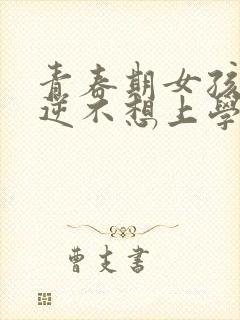 青春期女孩
逆不想上學
曹支書